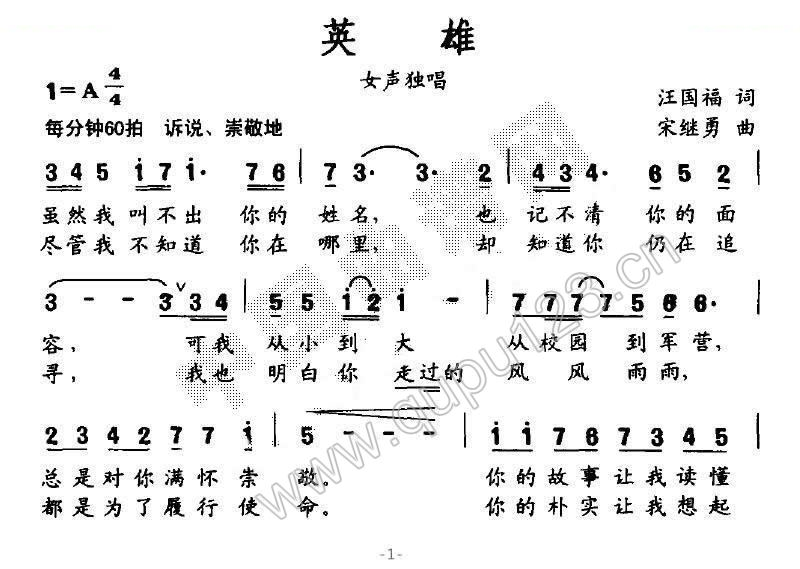 英 雄
女声独唱
1=A 4/4
汪国福 词
每分钟60拍 诉说、崇敬地
宋继勇 曲
3 4 5 i 7 i· 7 6 | 7 3· 3· 2 | 4 3 4· 6 5 2 |
虽然我 叫不出 你的 姓名, 也 记不清 你的 面
尽管我 不知道 你在 哪里, 却 知道你 仍在 追
3 - - 3 ∨ 3 4 | 5 5 i 2 i - | 7 7 7 7 5 6 6· |
容, 可我 从小到 大 从校园 到军营,
寻, 我也 明白你 走过的 风 风 雨雨,
2 3 4 2 7 7 i | 5 - - - | i i 7 6 7 3 4 5 |
总是对你满怀崇 敬。 你的故事让我读懂
都是为了履行使 命。 你的朴实让我想起
www.qupu123.cn
-1-